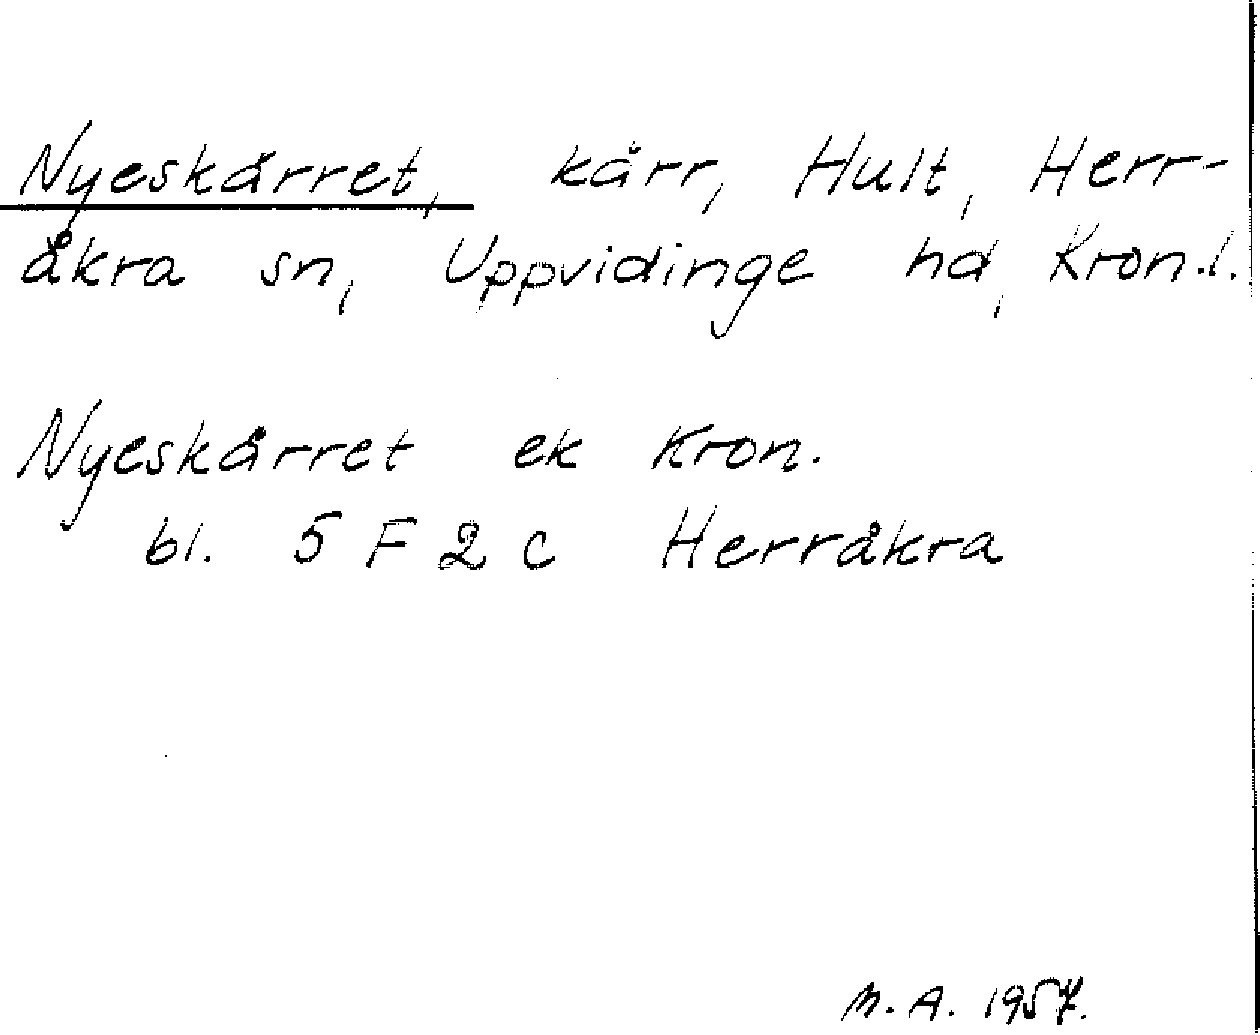 Nyeskärret, kärr, Hult, Herr-
åkra sn, Uppvidinge hd, Kron.l.
Nyeskärret ek Kron.
bl. 5 F 2 c Herråkra
M.A. 1957.